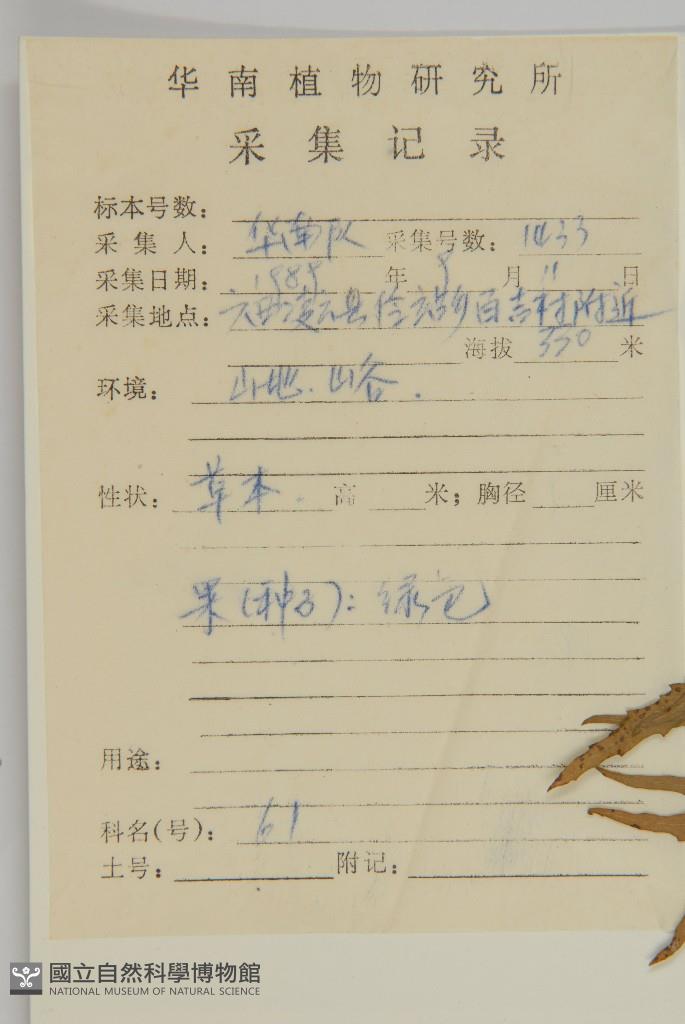 华南植物研究所
采集记录
标本号数：
采集人：华南队 采集号数：1433
采集日期：1989年9月11日
采集地点：广西凌云县伶站乡百吉村附近
海拔 330 米
环境：山地．山谷．
性状：草本． 高 米；胸径 厘米
果（种子）：绿色
用途：
科名(号)：61
土号： 附记：
國立自然科學博物館
NATIONAL MUSEUM OF NATURAL SCIENCE